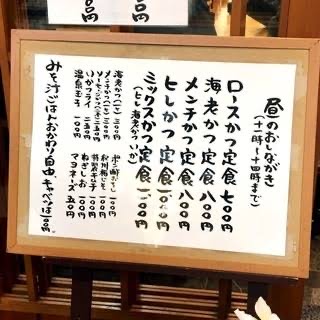 昼のおしながき
(十一時〜十四時まで)
ロースかつ定食 七〇〇円
海老かつ定食 八〇〇円
メンチかつ定食 八〇〇円
ヒレかつ定食 一〇〇〇円
ミックスかつ定食 一二〇〇円
(ヒレ 海老かつ いか)
海老かつ(一ケ) 三〇〇円
メンチかつ(一ケ) 三〇〇円
いかフライ 二五〇円
温泉玉子 一〇〇円
ポン酢おろし 一〇〇円
一〇〇円
ねぎしお 一〇〇円
マヨネーズ 五〇円
みそ汁ごはんおかわり自由 キャベツは一〇〇円。